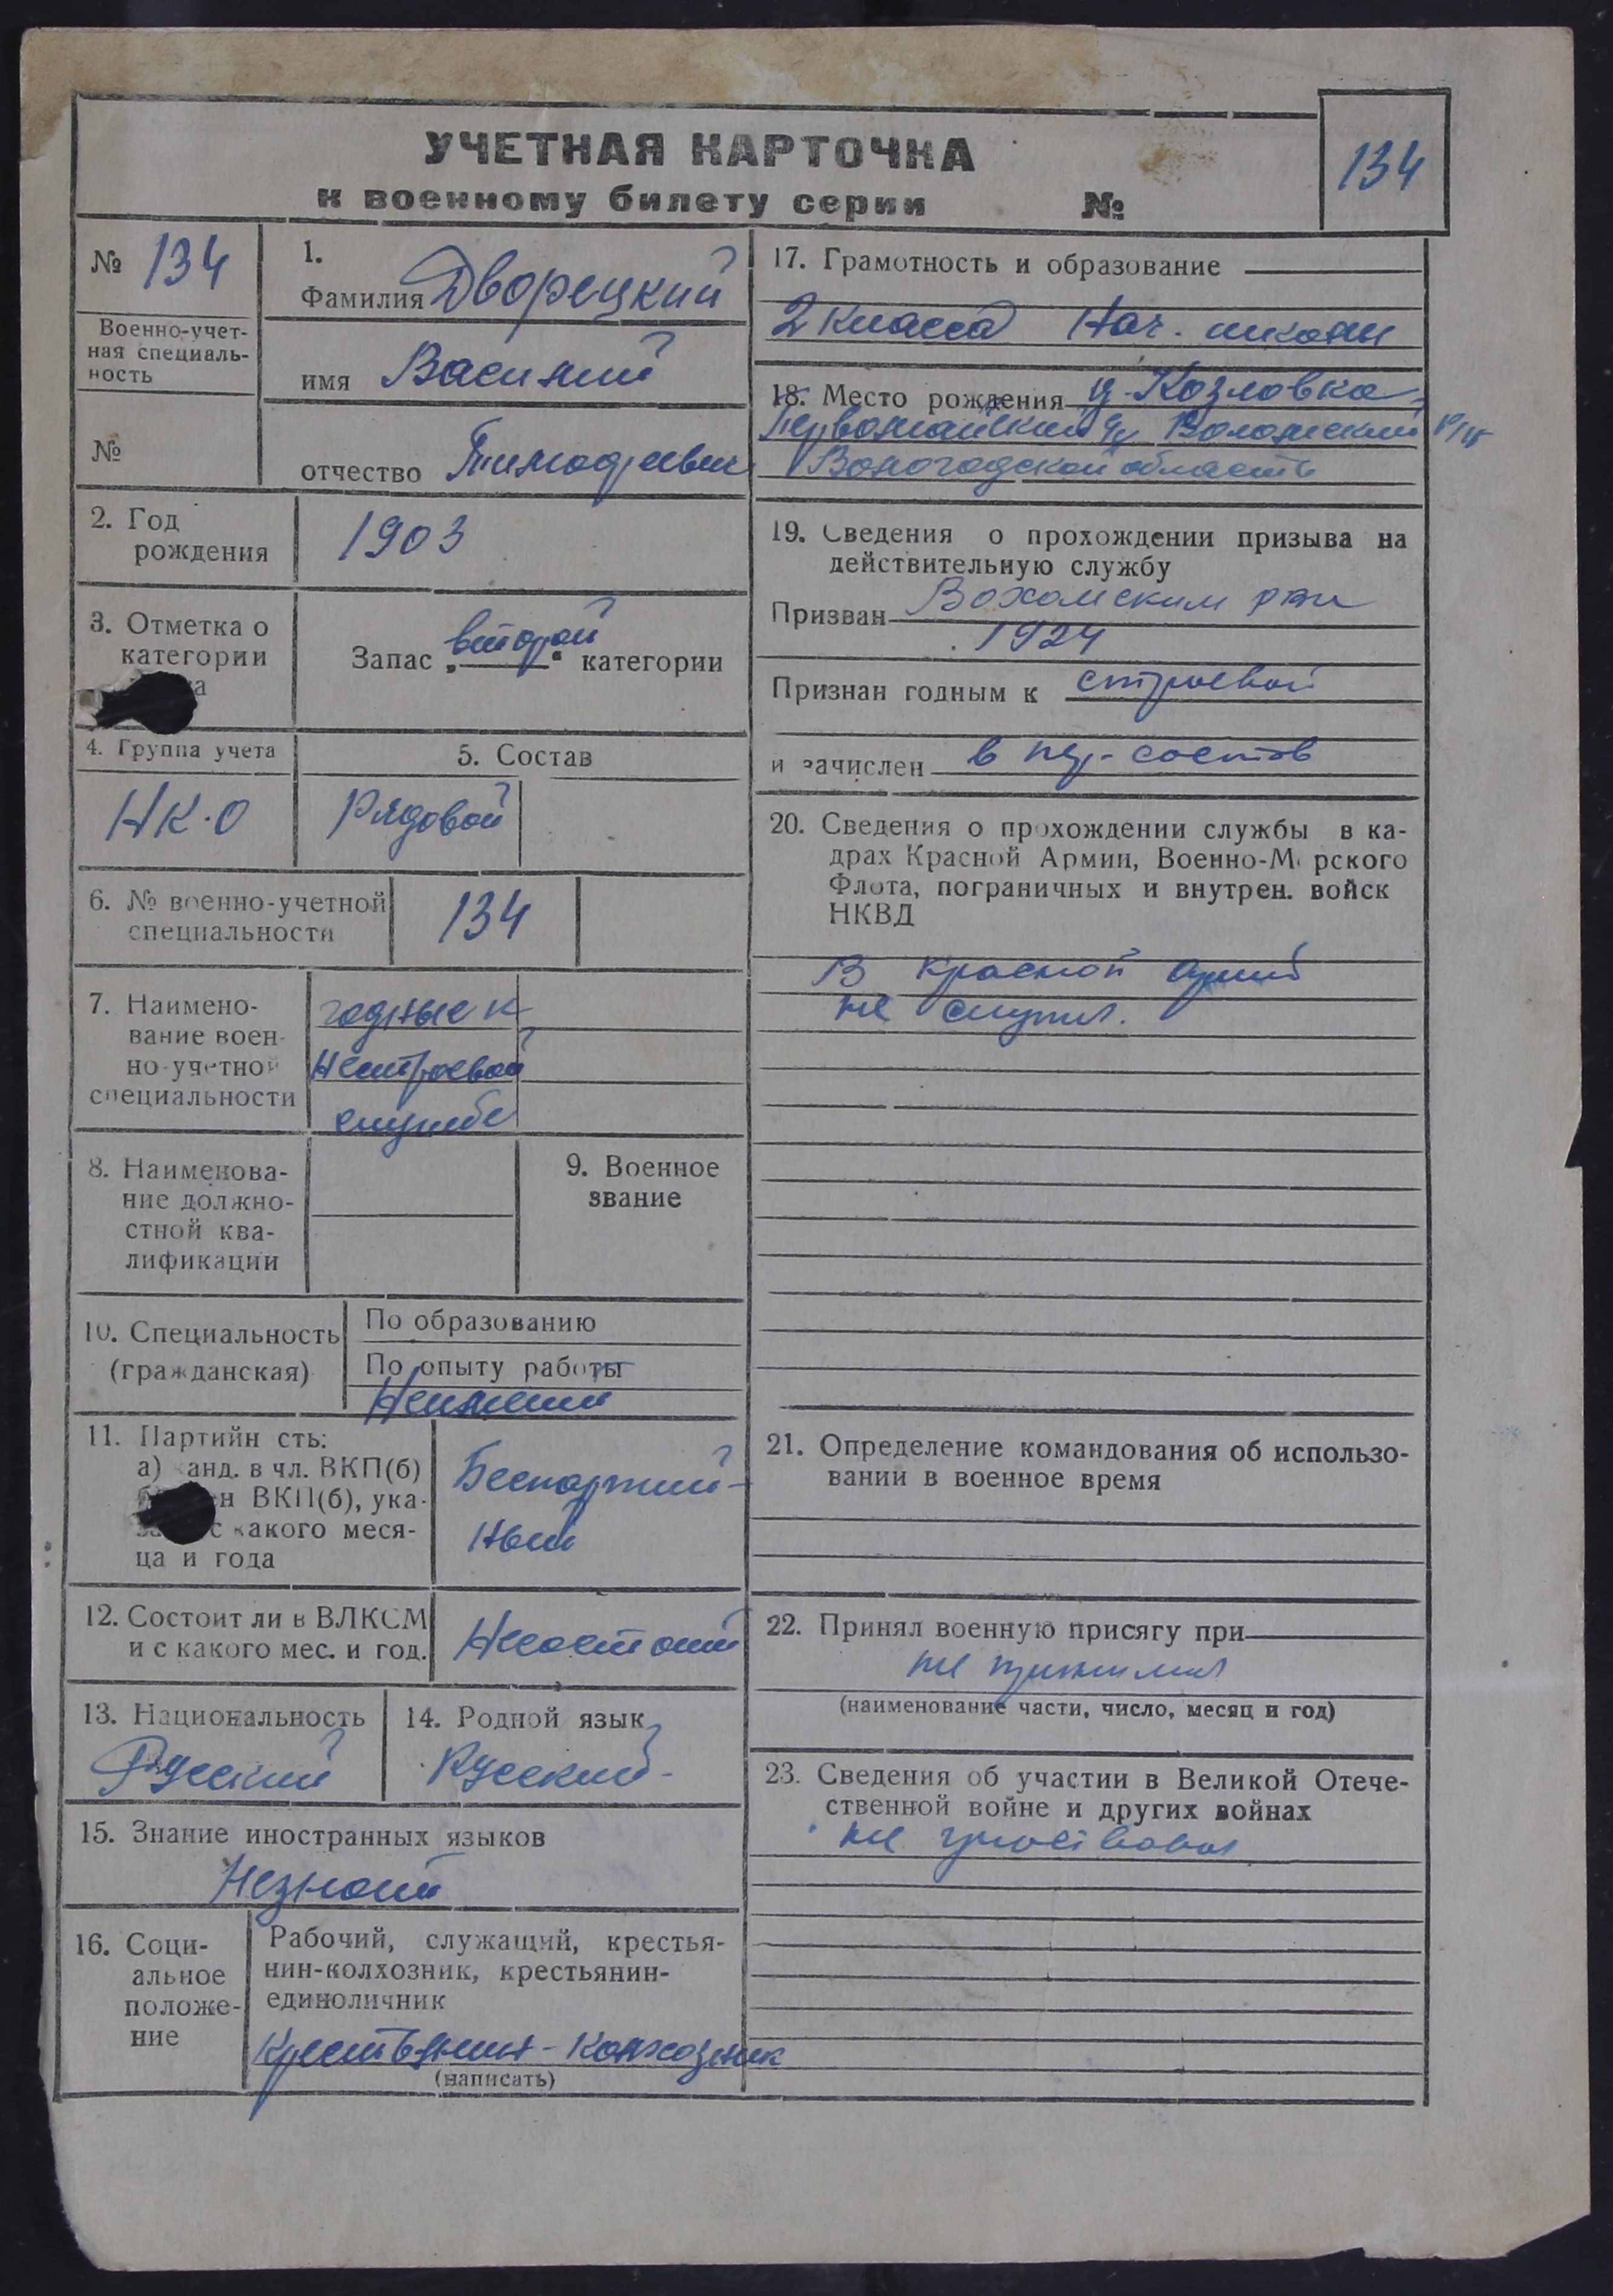 УЧЕТНАЯ КАРТОЧКА
к военному билету серии №
134
№ 134
Военно-учет-
ная специаль-
ность
№
1.
Фамилия Дворецкий
имя Василий
отчество Тимофеевич
2. Год
рождения
1903
3. Отметка о
категории
Запас „второй“ категории
4. Группа учета
НК·О
5. Состав
Рядовой
6. № военно-учетной
специальности
134
7. Наимено-
вание воен-
но-учетной
специальности
годные к
нестроевой
службе
8. Наименова-
ние должно-
стной ква-
лификации
9. Военное
звание
10. Специальность
(гражданская)
По образованию
По опыту работы
Неимеит
11. Партийн сть:
а) канд. в чл. ВКП(б)
ВКП(б), ука-
с какого меся-
ца и года
Беспартий-
ный
12. Состоит ли в ВЛКСМ
и с какого мес. и год.
Несостоит
13. Национальность
Русский
14. Родной язык
Русский
15. Знание иностранных языков
Незнает
16. Соци-
альное
положе-
ние
Рабочий, служащий, крестья-
нин-колхозник, крестьянин-
единоличник
Крестьянин-Колхозник
(написать)
17. Грамотность и образование
2 класса Нач. школы
18. Место рождения д. Козловка
Первомайский с/с Вохомский р/н
Вологодской область
19. Сведения о прохождении призыва на
действительную службу
Призван Вохомским рвк
1924
Признан годным к строевой
и зачислен в пер. состав
20. Сведения о прохождении службы в ка-
драх Красной Армии, Военно-Морского
Флота, пограничных и внутрен. войск
НКВД
В красной армий
не служил.
21. Определение командования об использо-
вании в военное время
22. Принял военную присягу при
не принимал
(наименование части, число, месяц и год)
23. Сведения об участии в Великой Отече-
ственной войне и других войнах
не участвовал